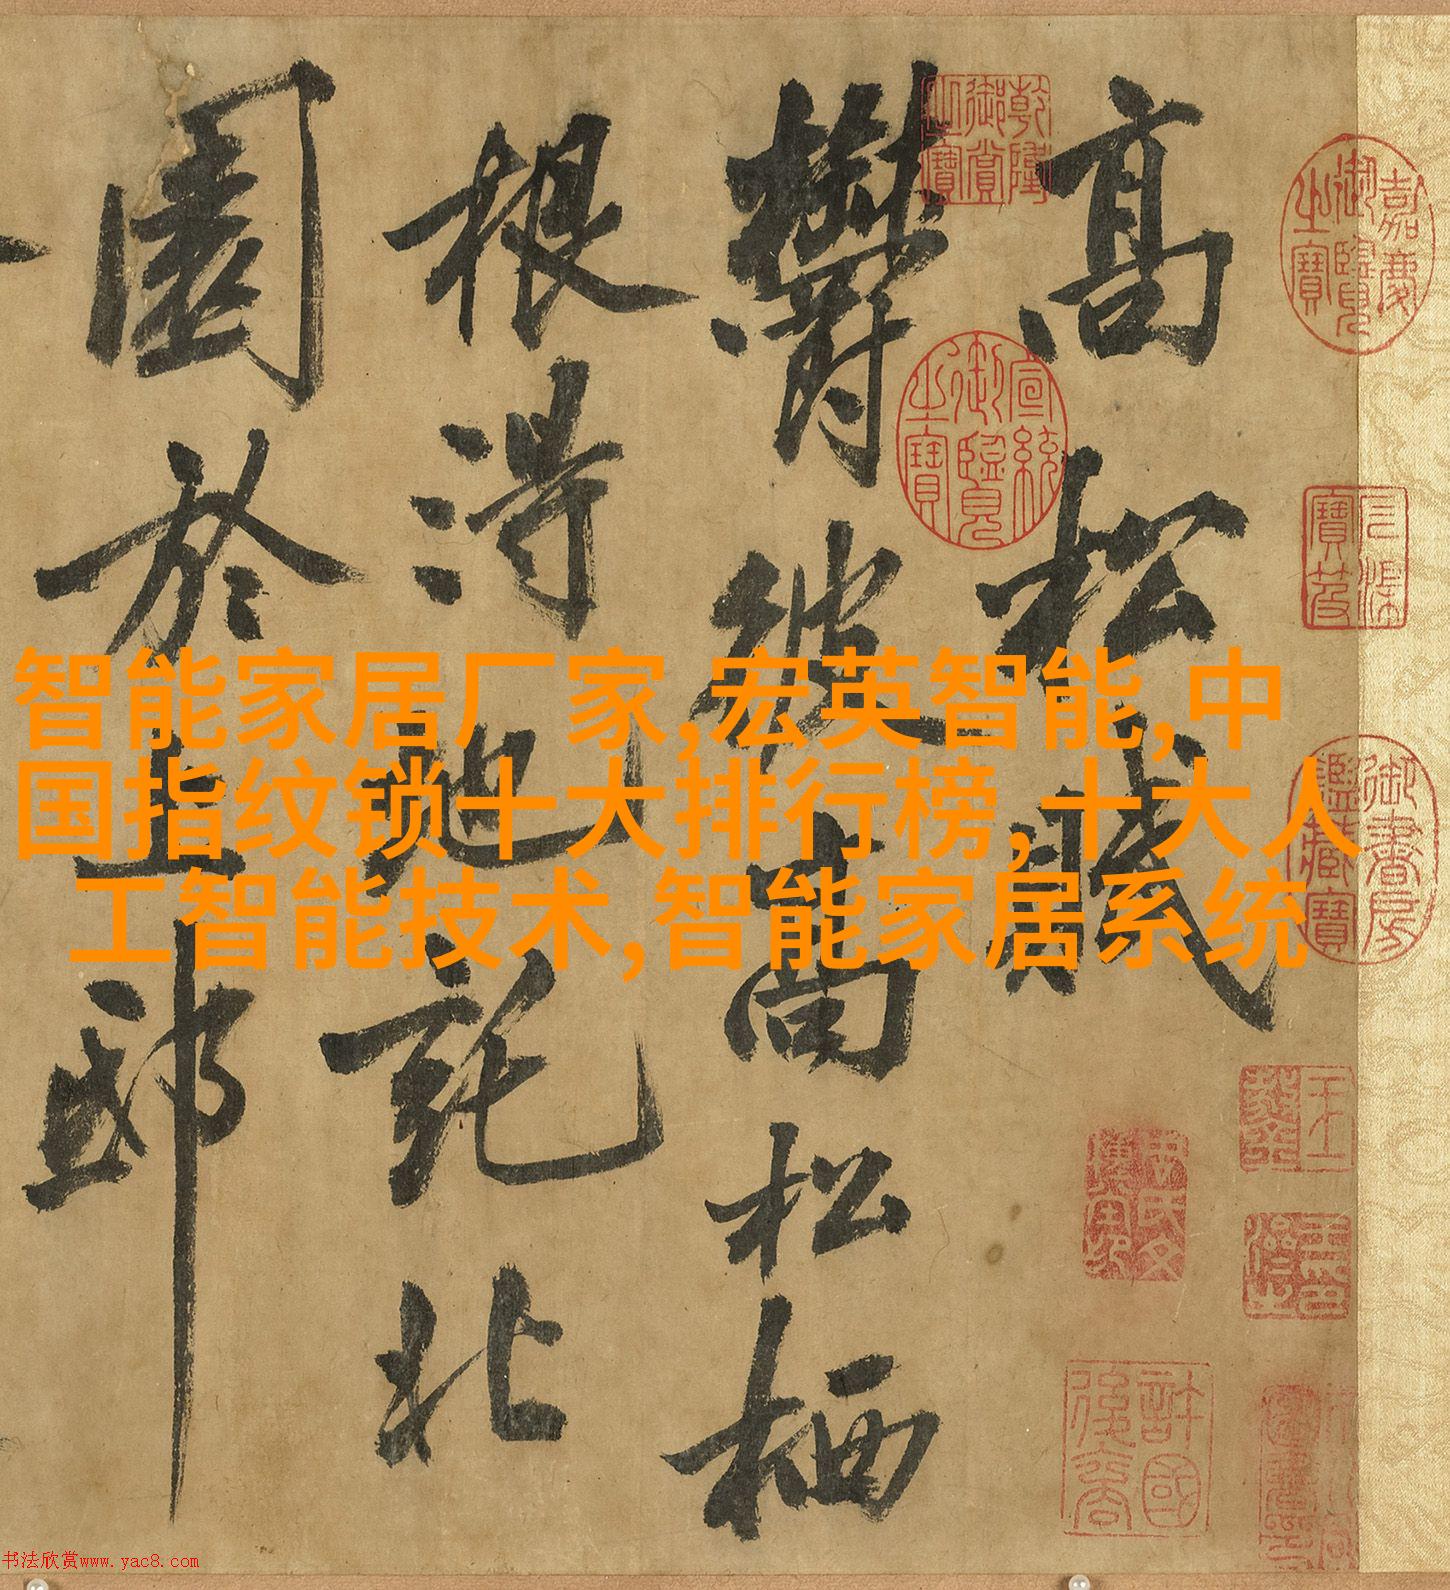 高松賦
鬱彼高松栖
根得地託北
園於上邸
智能家居厂家,宏英智能,中
国指纹锁十大排行榜,十大人
工智能技术,智能家居系统
嘉慶御覽之寶
乾隆御賞之寶
宣統御覽之寶
石渠寶笈
御書房鑑藏寶
許國後裔
书法欣赏www.yac8.com